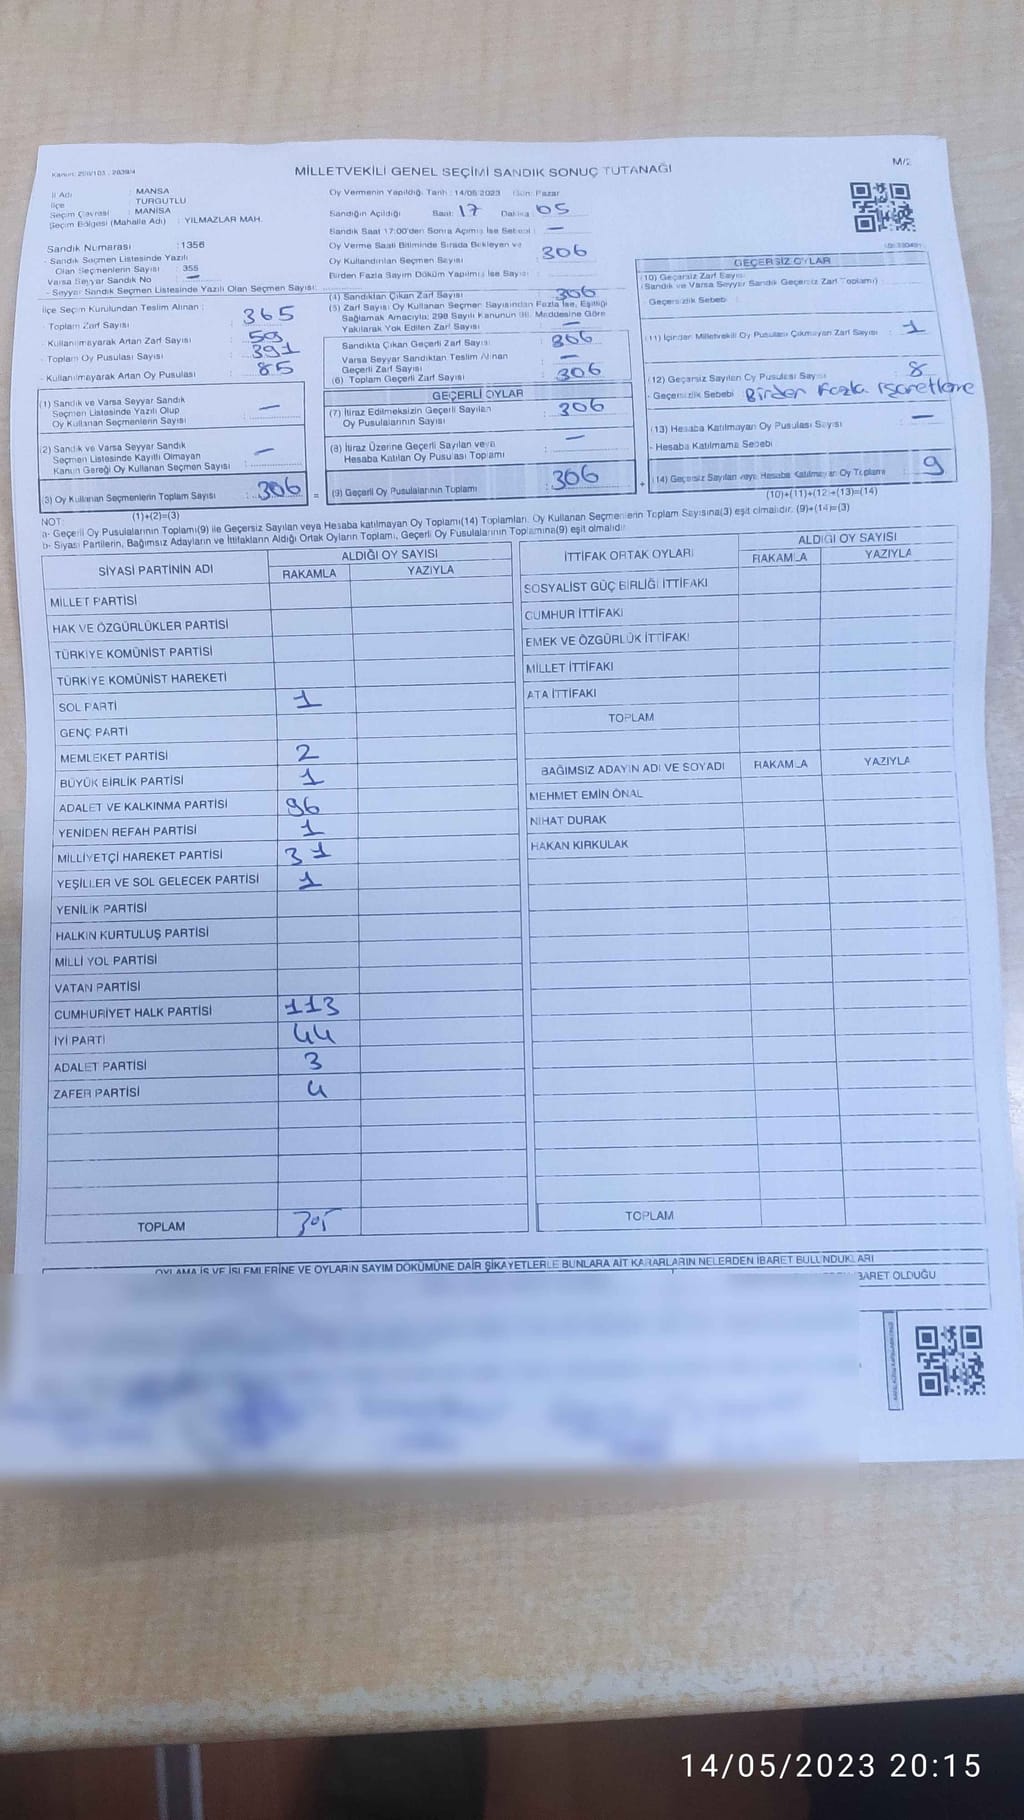 Kanun: 298/103 , 2839/4
MİLLETVEKİLİ GENEL SEÇİMİ SANDIK SONUÇ TUTANAĞI
M/2
İl Adı : MANİSA
İlçe : TURGUTLU
Seçim Çevresi : MANİSA
Seçim Bölgesi (Mahalle Adı) : YILMAZLAR MAH.
Sandık Numarası : 1356
- Sandık Seçmen Listesinde Yazılı
Olan Seçmenlerin Sayısı : 355
Varsa Seyyar Sandık No : —
- Seyyar Sandık Seçmen Listesinde Yazılı Olan Seçmen Sayısı:
Oy Vermenin Yapıldığı Tarih : 14/05/2023 Gün: Pazar
Sandığın Açıldığı Saat: 17 Dakika : 05
Sandık Saat 17:00'den Sonra Açılmış İse Sebebi : —
Oy Verme Saati Bitiminde Sırada Bekleyen ve
Oy Kullandırılan Seçmen Sayısı : 306
Birden Fazla Sayım Döküm Yapılmış İse Sayısı :
İlçe Seçim Kurulundan Teslim Alınan :
- Toplam Zarf Sayısı : 365
- Kullanılmayarak Artan Zarf Sayısı : 59
- Toplam Oy Pusulası Sayısı : 391
- Kullanılmayarak Artan Oy Pusulası : 85
(1) Sandık ve Varsa Seyyar Sandık
Seçmen Listesinde Yazılı Olup
Oy Kullanan Seçmenlerin Sayısı : —
(2) Sandık ve Varsa Seyyar Sandık
Seçmen Listesinde Kayıtlı Olmayan
Kanun Gereği Oy Kullanan Seçmen Sayısı : —
(3) Oy Kullanan Seçmenlerin Toplam Sayısı : 306 =
(1)+(2)=(3)
(4) Sandıktan Çıkan Zarf Sayısı : 306
(5) Zarf Sayısı Oy Kullanan Seçmen Sayısından Fazla İse, Eşitliği
Sağlamak Amacıyla; 298 Sayılı Kanunun 98. Maddesine Göre
Yakılarak Yok Edilen Zarf Sayısı : —
Sandıkta Çıkan Geçerli Zarf Sayısı : 306
Varsa Seyyar Sandıktan Teslim Alınan
Geçerli Zarf Sayısı : —
(6) Toplam Geçerli Zarf Sayısı : 306
GEÇERLİ OYLAR
(7) İtiraz Edilmeksizin Geçerli Sayılan
Oy Pusulalarının Sayısı : 306
(8) İtiraz Üzerine Geçerli Sayılan veya
Hesaba Katılan Oy Pusulası Toplamı : —
(9) Geçerli Oy Pusulalarının Toplamı : 306 +
GEÇERSİZ OYLAR
(10) Geçersiz Zarf Sayısı
(Sandık ve Varsa Seyyar Sandık Geçersiz Zarf Toplamı) :
- Geçersizlik Sebebi :
(11) İçinden Milletvekili Oy Pusulası Çıkmayan Zarf Sayısı : 1
(12) Geçersiz Sayılan Oy Pusulası Sayısı : 8
- Geçersizlik Sebebi : Birden Fazla işaretleme
(13) Hesaba Katılmayan Oy Pusulası Sayısı : —
- Hesaba Katılmama Sebebi :
(14) Geçersiz Sayılan veya Hesaba Katılmayan Oy Toplamı : 9
(10)+(11)+(12)+(13)=(14)
NOT:
a- Geçerli Oy Pusulalarının Toplamı(9) ile Geçersiz Sayılan veya Hesaba katılmayan Oy Toplamı(14) Toplamları, Oy Kullanan Seçmenlerin Toplam Sayısına(3) eşit olmalıdır. (9)+(14)=(3)
b- Siyasi Partilerin, Bağımsız Adayların ve İttifakların Aldığı Ortak Oyların Toplamı, Geçerli Oy Pusulalarının Toplamına(9) eşit olmalıdır.
SİYASİ PARTİNİN ADI ALDIĞI OY SAYISI
RAKAMLA YAZIYLA
MİLLET PARTİSİ
HAK VE ÖZGÜRLÜKLER PARTİSİ
TÜRKİYE KOMÜNİST PARTİSİ
TÜRKİYE KOMÜNİST HAREKETİ
SOL PARTİ 1
GENÇ PARTİ
MEMLEKET PARTİSİ 2
BÜYÜK BİRLİK PARTİSİ 1
ADALET VE KALKINMA PARTİSİ 96
YENİDEN REFAH PARTİSİ 1
MİLLİYETÇİ HAREKET PARTİSİ 31
YEŞİLLER VE SOL GELECEK PARTİSİ 1
YENİLİK PARTİSİ
HALKIN KURTULUŞ PARTİSİ
MİLLİ YOL PARTİSİ
VATAN PARTİSİ
CUMHURİYET HALK PARTİSİ 113
İYİ PARTİ 44
ADALET PARTİSİ 3
ZAFER PARTİSİ 4
TOPLAM 305
İTTİFAK ORTAK OYLARI ALDIĞI OY SAYISI
RAKAMLA YAZIYLA
SOSYALİST GÜÇ BİRLİĞİ İTTİFAKI
CUMHUR İTTİFAKI
EMEK VE ÖZGÜRLÜK İTTİFAKI
MİLLET İTTİFAKI
ATA İTTİFAKI
TOPLAM
BAĞIMSIZ ADAYIN ADI VE SOYADI RAKAMLA YAZIYLA
MEHMET EMİN ÖNAL
NİHAT DURAK
HAKAN KIRKULAK
TOPLAM
OYLAMA İŞ VE İŞLEMLERİNE VE OYLARIN SAYIM DÖKÜMÜNE DAİR ŞİKAYETLERLE BUNLARA AİT KARARLARIN NELERDEN İBARET BULUNDUKLARI
BARET OLDUĞU
14/05/2023 20:15